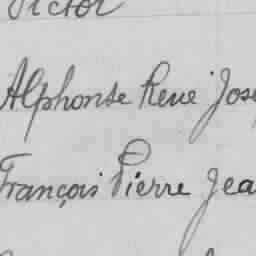 Victor
Alphonse René Jos
François Pierre Jea